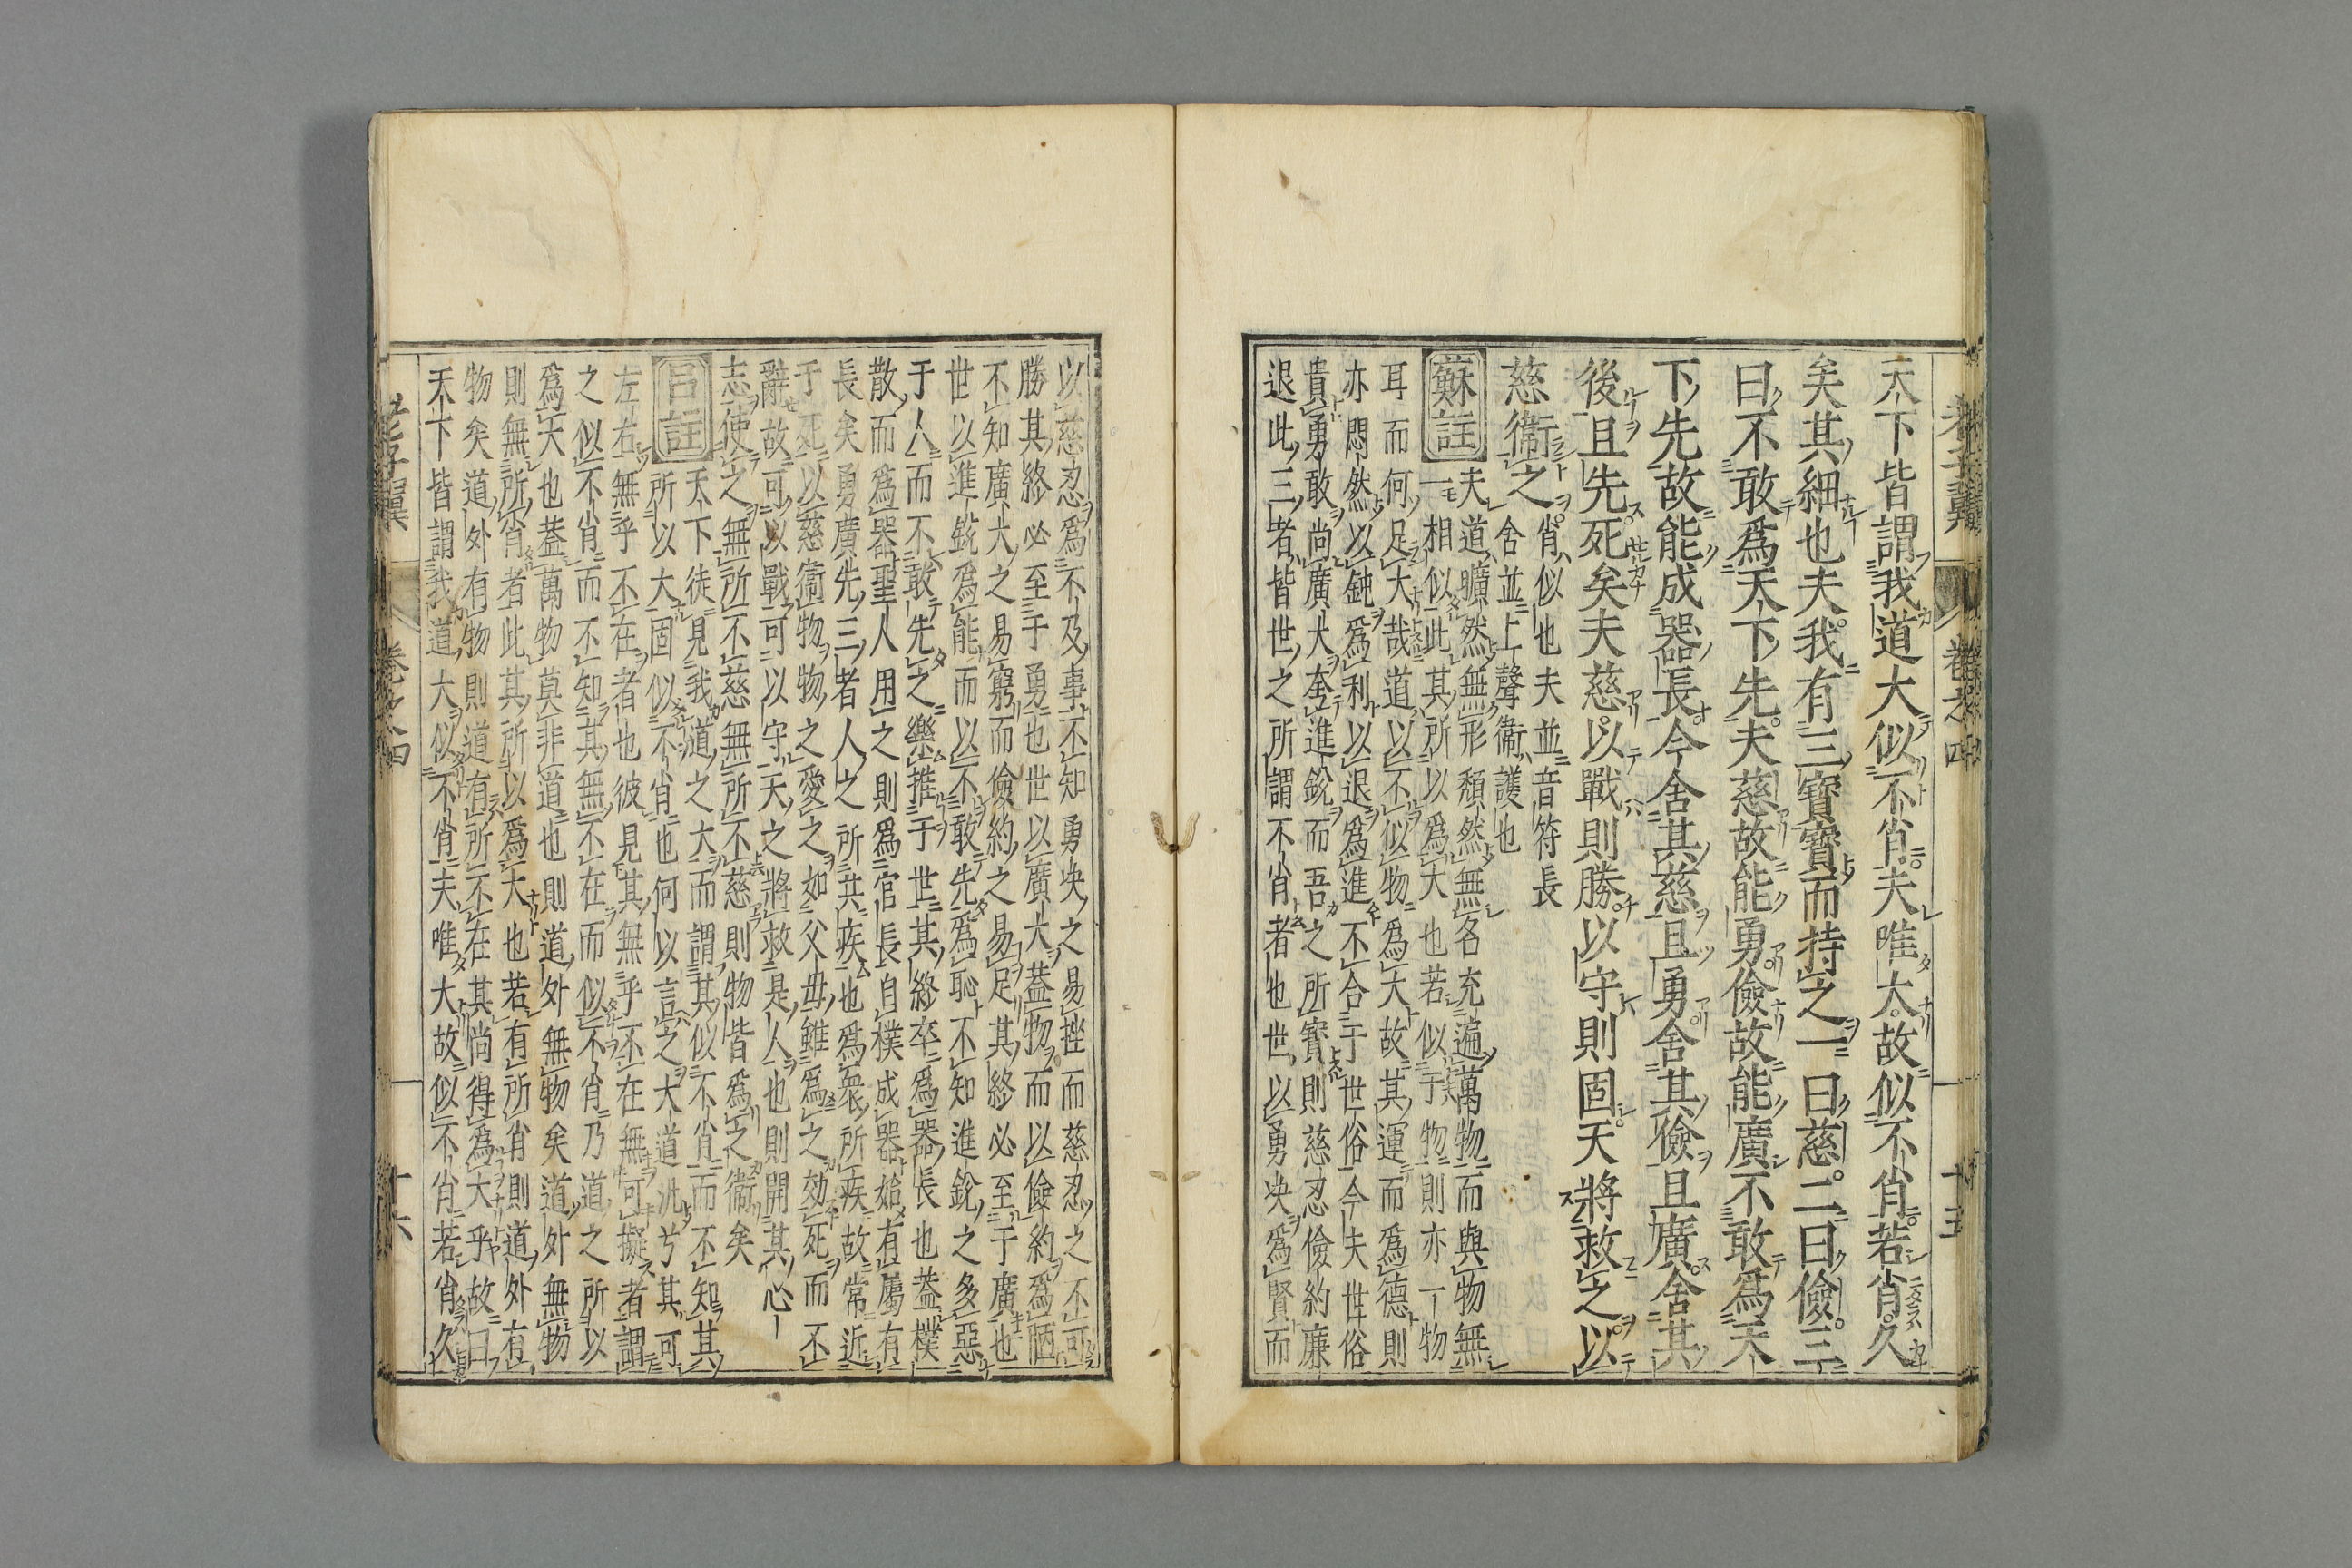 老子翼 卷之四 十五
天下皆謂我道大似不肖夫唯大故似不肖若肖久
矣其細也夫我有三寶寶而持之一曰慈二曰儉三
曰不敢爲天下先夫慈故能勇儉故能廣不敢爲天
下先故能成器長今舍其慈且勇舍其儉且廣舍其
後且先死矣夫慈以戰則勝以守則固天將救之以
慈衞之
肖似也夫並音符長
舍並上聲衞護也
蘇註
夫道曠然無形頽然無名充遍萬物而與物無
一相似此其所以爲大也若似于物則亦一物
耳而何足大哉道以不似物爲大故其運而爲德則
亦悶然以鈍爲利以退爲進不合于世俗今夫世俗
貴勇敢尚廣大夸進銳而吾之所寶則慈忍儉約廉
退此三者皆世之所謂不肖者也世以勇决爲賢而
以慈忍爲不及事不知勇决之易挫而慈忍之不可
勝其終必至于勇也世以廣大蓋物而以儉約爲陋
不知廣大之易窮而儉約之易足其終必至于廣也
世以進銳爲能而以不敢先爲恥不知進銳之多惡
于人而不敢先之樂推于世其終卒爲器長也蓋樸
散而爲器聖人用之則爲官長自樸成器始有屬有
長矣勇廣先三者人之所共疾也爲衆所疾故常近
于死以慈衞物物之愛之如父母雖爲之効死而不
辭故可以戰可以守天之將救是人也則開其心
志使之無所不慈無所不慈則物皆爲之衞矣
呂註
天下徒見我道之大而謂其似不肖而不知其
所以大固似不肖也何以言之大道汎兮其可
左右無乎不在者也彼見其無乎不在無可擬者謂
之似不肖而不知其無不在而似不肖乃道之所以
爲天也蓋萬物莫非道也則道外無物矣道外無物
則無所肖者此其所以爲大也若有所肖則道外有
物矣道外有物則道有所不在其尚得爲大乎故曰
天下皆謂我道大似不肖夫唯大故似不肖若肖久
老子翼 卷之四 十六